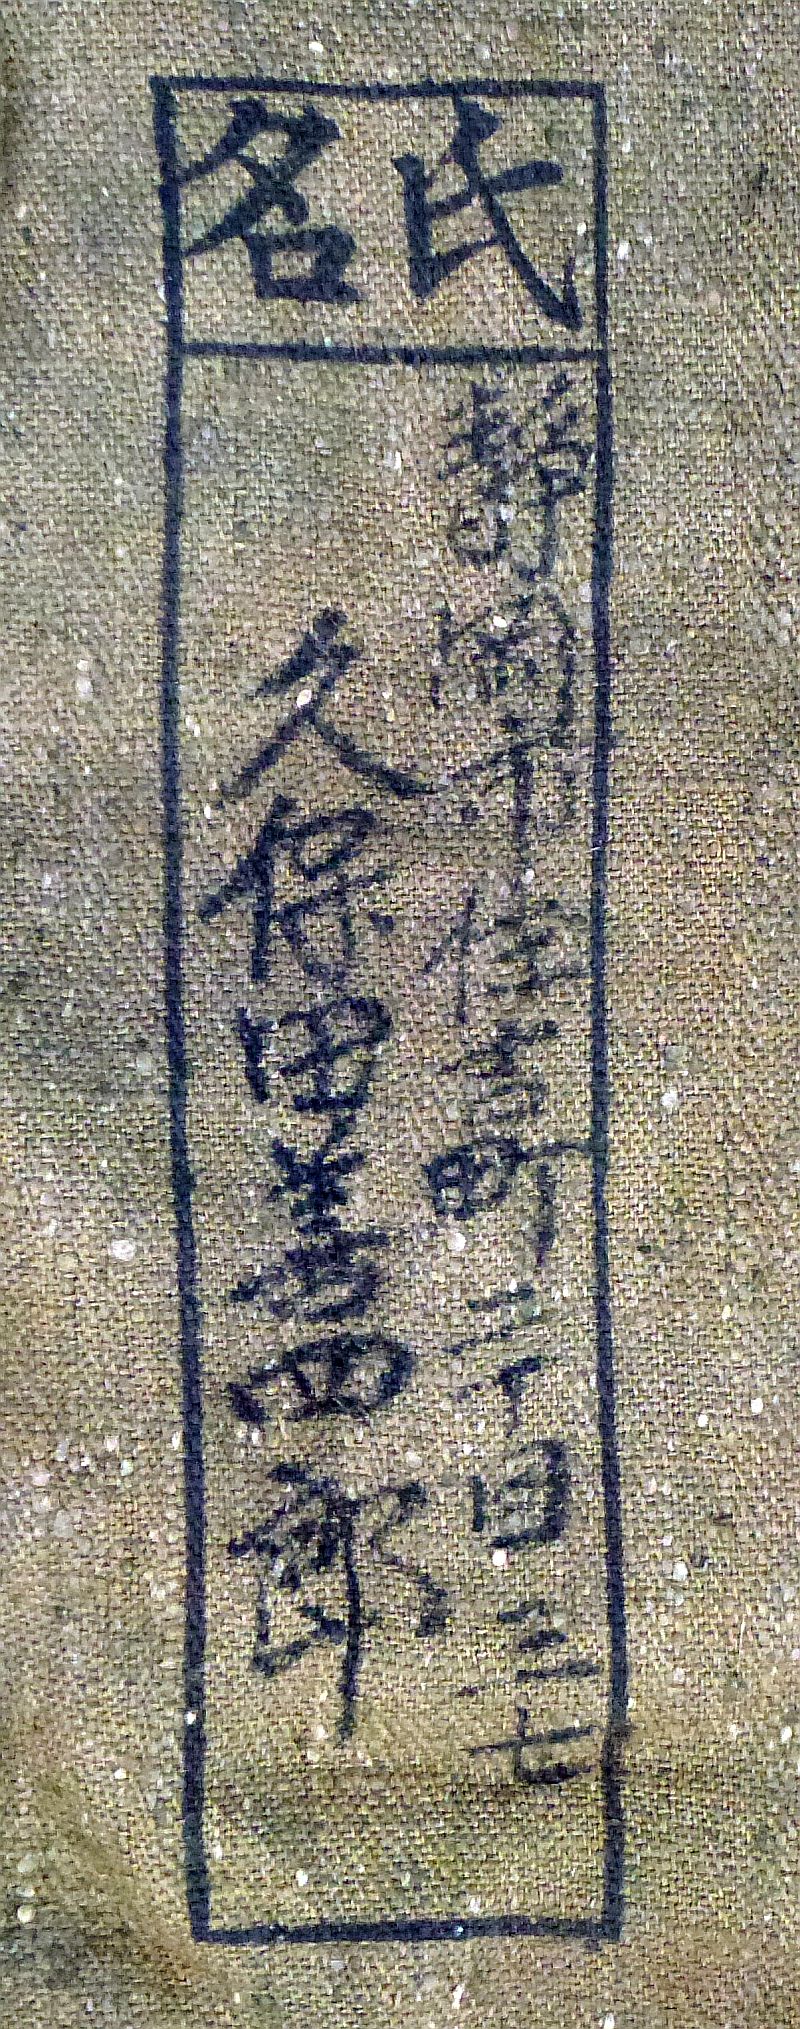 氏名
静岡市住吉町二丁目三七
久保田善四郎